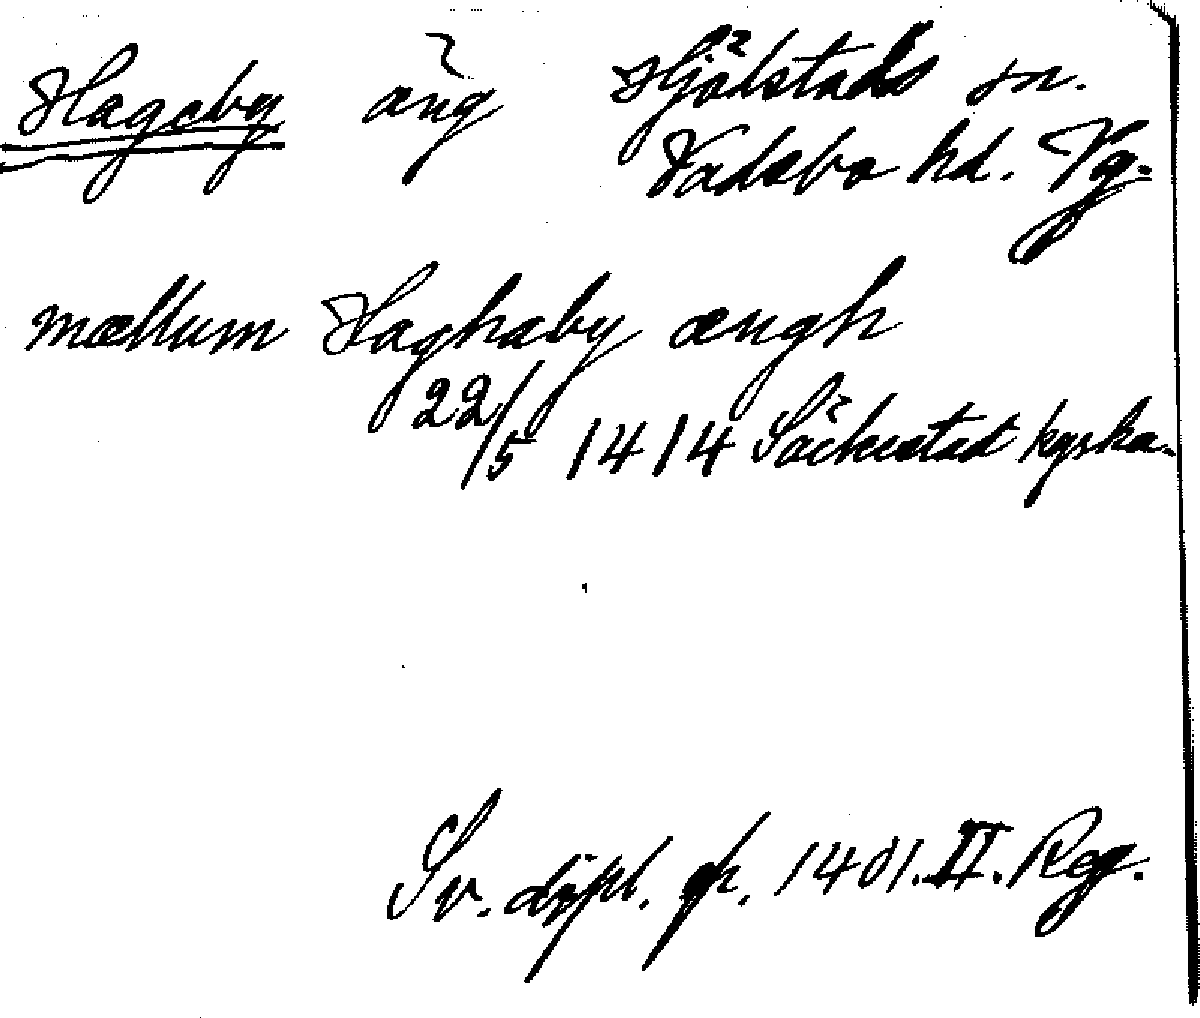 Hageby äng Hjälstads sn.
Vadsbo hd. Vg.
mællum Haghaby ængh
22/5 1414 Säckestad kyrka.
Sv. dipl. fr. 1401. II. Reg.